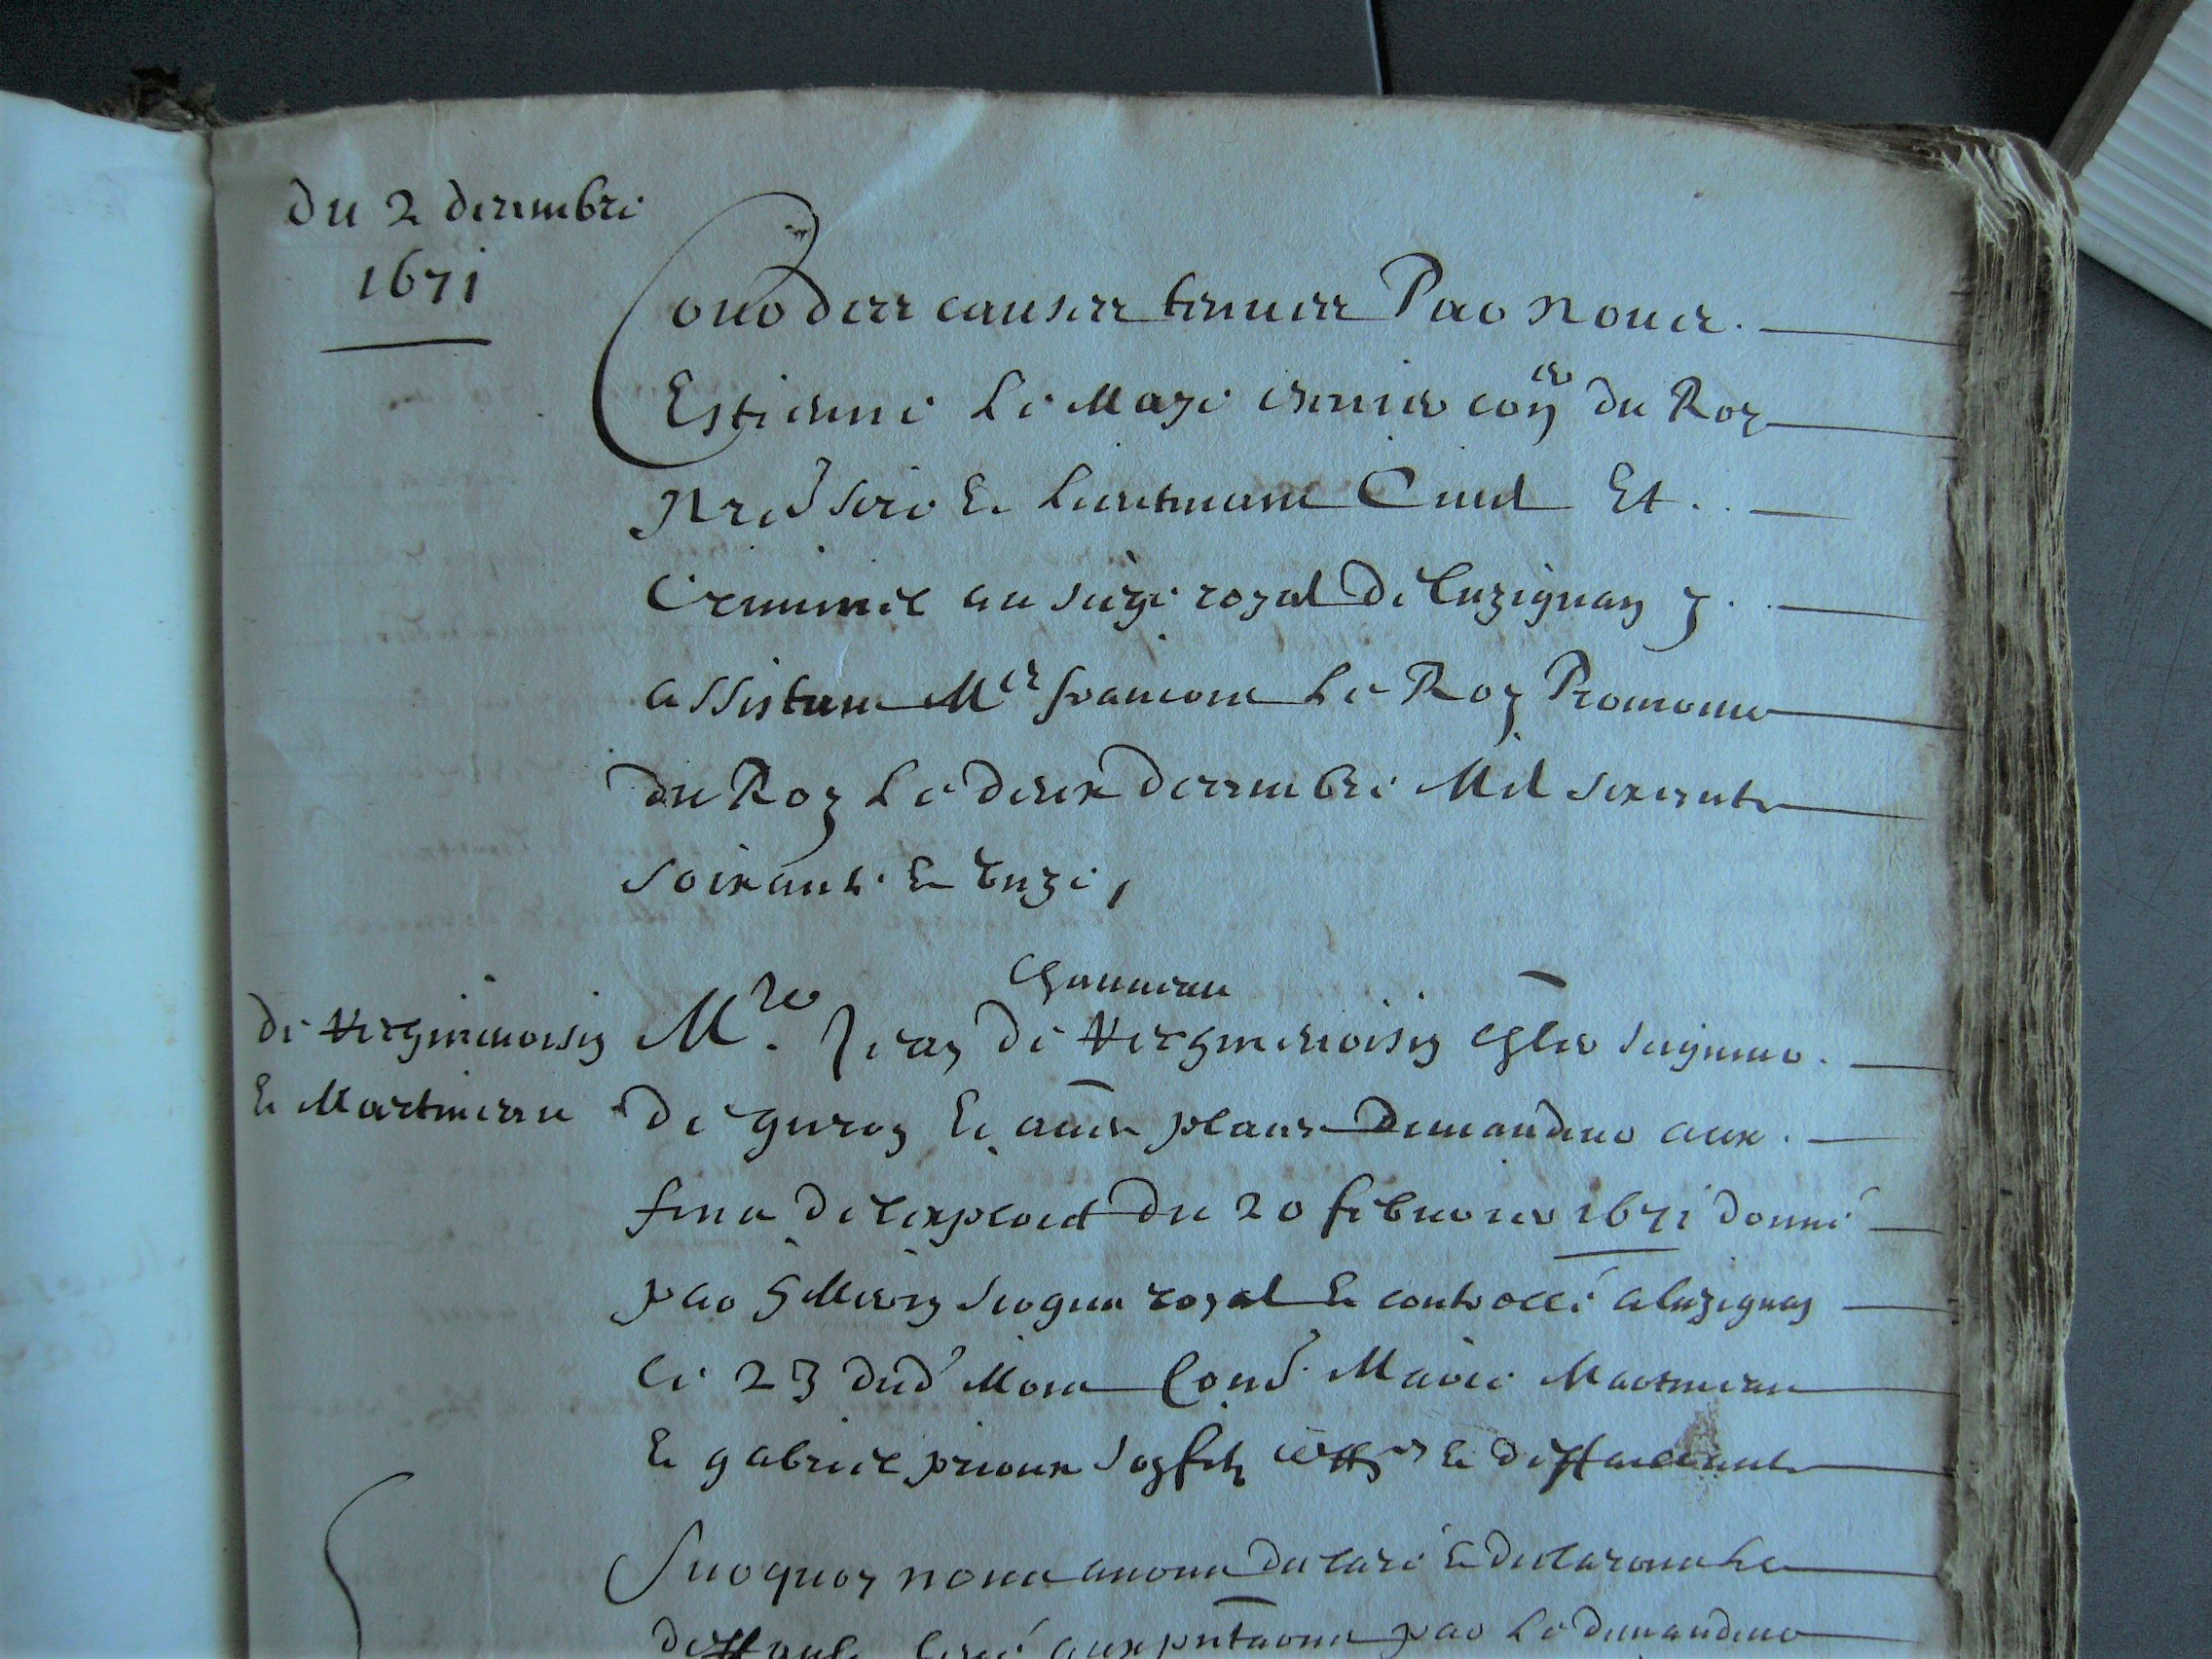 du 2 decembre
1671
Cour des causes tenues Par Nous
Estienne Le Maye escuier con.er du Roy
Prevost et Lieutenant Civil Et
Criminel au siege royal de Luzignan y
assistant Me francois Le Roy Procureur
du Roy Le deux decembre Mil six cents
soixante et unze,
de Verginenoisin
et Martineau
Mre Jean Chauveau de Verginenoisin chlier seigneur
de et aues places Demandeur aux
fins de l'exploict du 20 febvrier 1671 donné
par sergent royal et controllé a luzignan
le 23 dud mois Cond Marie Martineau
et gabriel prioux son filz et deffaillants
Surquoy nous avons declaré et declarons le
deffault levé aux pntaons par Le demandeur